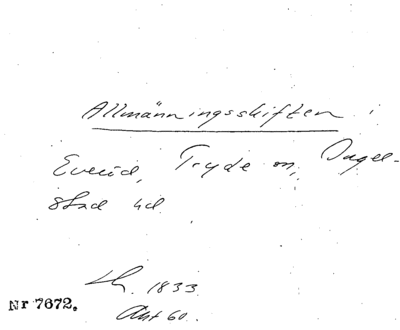 Allmänningsskiften i
Everöd, Tryde m, Ingel-
stad hd
1833
Akt 60.
Nr 7672.